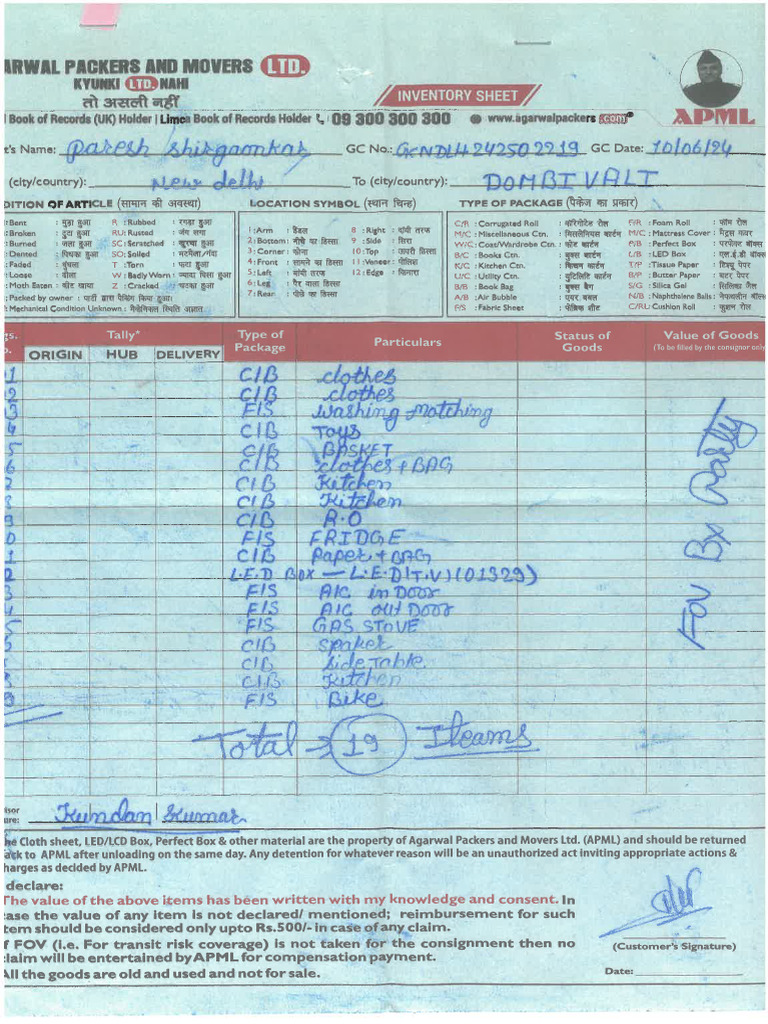 ARWAL PACKERS AND MOVERS LTD.
KYUNKI LTD. NAHI
तो असली नहीं
INVENTORY SHEET
Book of Records (UK) Holder | Limca Book of Records Holder 09 300 300 300 www.agarwalpackers.com
APML
t's Name: Paresh Shirgaonkar GC No.: GKNDLH242502219 GC Date: 10/06/24
(city/country): New delhi To (city/country): DOMBIVALI
DITION OF ARTICLE (सामान की अवस्था) LOCATION SYMBOL (स्थान चिन्ह) TYPE OF PACKAGE (पैकेज का प्रकार)
:Bent : मुड़ा हुआ R :Rubbed : रगड़ा हुआ
:Broken : टूटा हुआ RU: Rusted : जंग लगा
:Burned : जला हुआ SC: Scratched : खुरचा हुआ
:Dented : पिचका हुआ SO: Soiled
:Faded : धुंधला T :Torn : फटा हुआ
:Loose : ढीला W :Badly Worn : ज्यादा घिसा हुआ
:Moth Eaten : कीट खाया Z :Cracked : चटका हुआ
:Packed by owner : पार्टी द्वारा पैकिंग किया हुआ।
: Mechanical Condition Unknown : मैकेनिकल स्थिति अज्ञात
1 :Arm : हैंडल 8 : Right : दांयी तरफ
2 : Bottom : नीचे का हिस्सा 9 : Side : सिरा
3 : Corner : कोना 10 : Top : ऊपरी हिस्सा
4 : Front : सामने का हिस्सा 11 : Veneer : पॉलिश
5 : Left : बांयी तरफ 12 : Edge : किनारा
6 : Leg : पैर वाला हिस्सा
7 : Rear : पीछे का हिस्सा
C/R : Corrugated Roll : कॉरिगेटेड रोल F/R : Foam Roll : फॉम रोल
M/C : Miscellaneous Ctn. : मिसलेनियस कार्टन M/C : Mattress Cover : मैट्रस कवर
W/C : Coat/Wardrobe Ctn. : कोट कार्टन P/B : Perfect Box : परफेक्ट बॉक्स
B/C : Books Ctn. : बुक्स कार्टन L/B : LED Box : एल.ई.डी बॉक्स
K/C : Kitchen Ctn. : किचन कार्टन T/P : Tissue Paper : टिश्यू पेपर
U/C : Utility Ctn. : यूटिलिटि कार्टन B/P : Butter Paper : बटर पेपर
B/B : Book Bag : बुक्स बैग S/G : Silica Gel : सिलिका जैल
A/B : Air Bubble : एयर बबल N/B : Naphthelene Balls : नेफ्थलीन बॉल्स
F/S : Fabric Sheet : फेब्रिक शीट C/RL: Cushion Roll : कुशन रोल
gs. Tally* Type of Package Particulars Status of Goods Value of Goods
o. ORIGIN HUB DELIVERY (To be filled by the consignor only)
1 C/B clothes
2 C/B clothes
3 F/S Washing Motching
C/B Toys
C/B BASKET
6 C/B clothes + BAG
C/B Kitchen
C/B Kitchen
C/B R.O
F/S FRIDGE
C/B Paper + BAG
L.E.D Box — L.E.D(T.V)(01329)
F/S A/C in Door
F/S A/C out Door
F/S GAS STOVE
C/B speaker
C/B side Table
C/B Kitchen
F/S Bike
FOV Bx Partly
Total → 19 Iteams
isor
ure: Kundan Kumar
he Cloth sheet, LED/LCD Box, Perfect Box & other material are the property of Agarwal Packers and Movers Ltd. (APML) and should be returned
ack to APML after unloading on the same day. Any detention for whatever reason will be an unauthorized act inviting appropriate actions &
harges as decided by APML.
declare:
The value of the above items has been written with my knowledge and consent. In
ase the value of any item is not declared/ mentioned; reimbursement for such
tem should be considered only upto Rs.500/- in case of any claim.
f FOV (i.e. For transit risk coverage) is not taken for the consignment then no
laim will be entertained by APML for compensation payment.
All the goods are old and used and not for sale.
(Customer's Signature)
Date: